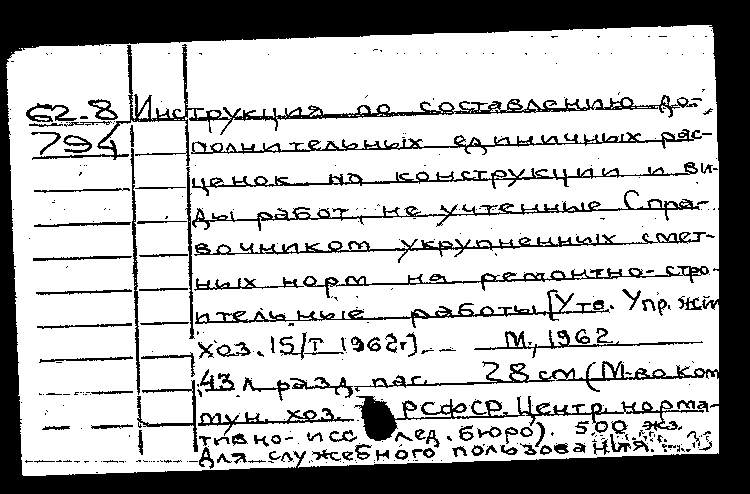 62-8 Инструкция по составлению до-
794 полнительных единичных рас-
ценок по конструкции и ви-
ды работ, не учтенные Спра-
вочником укрупненных смет-
ных норм на ремонтно-стро-
ительные работы [Утв. Упр. жил
хоз. 15/I 1962г]. М., 1962.
43 л. разд. паг. 28 см (М-во ком
мун. хоз. РСФСР. Центр. норма-
тивно-иссслед. бюро). 500 экз.
Для служебного пользования.